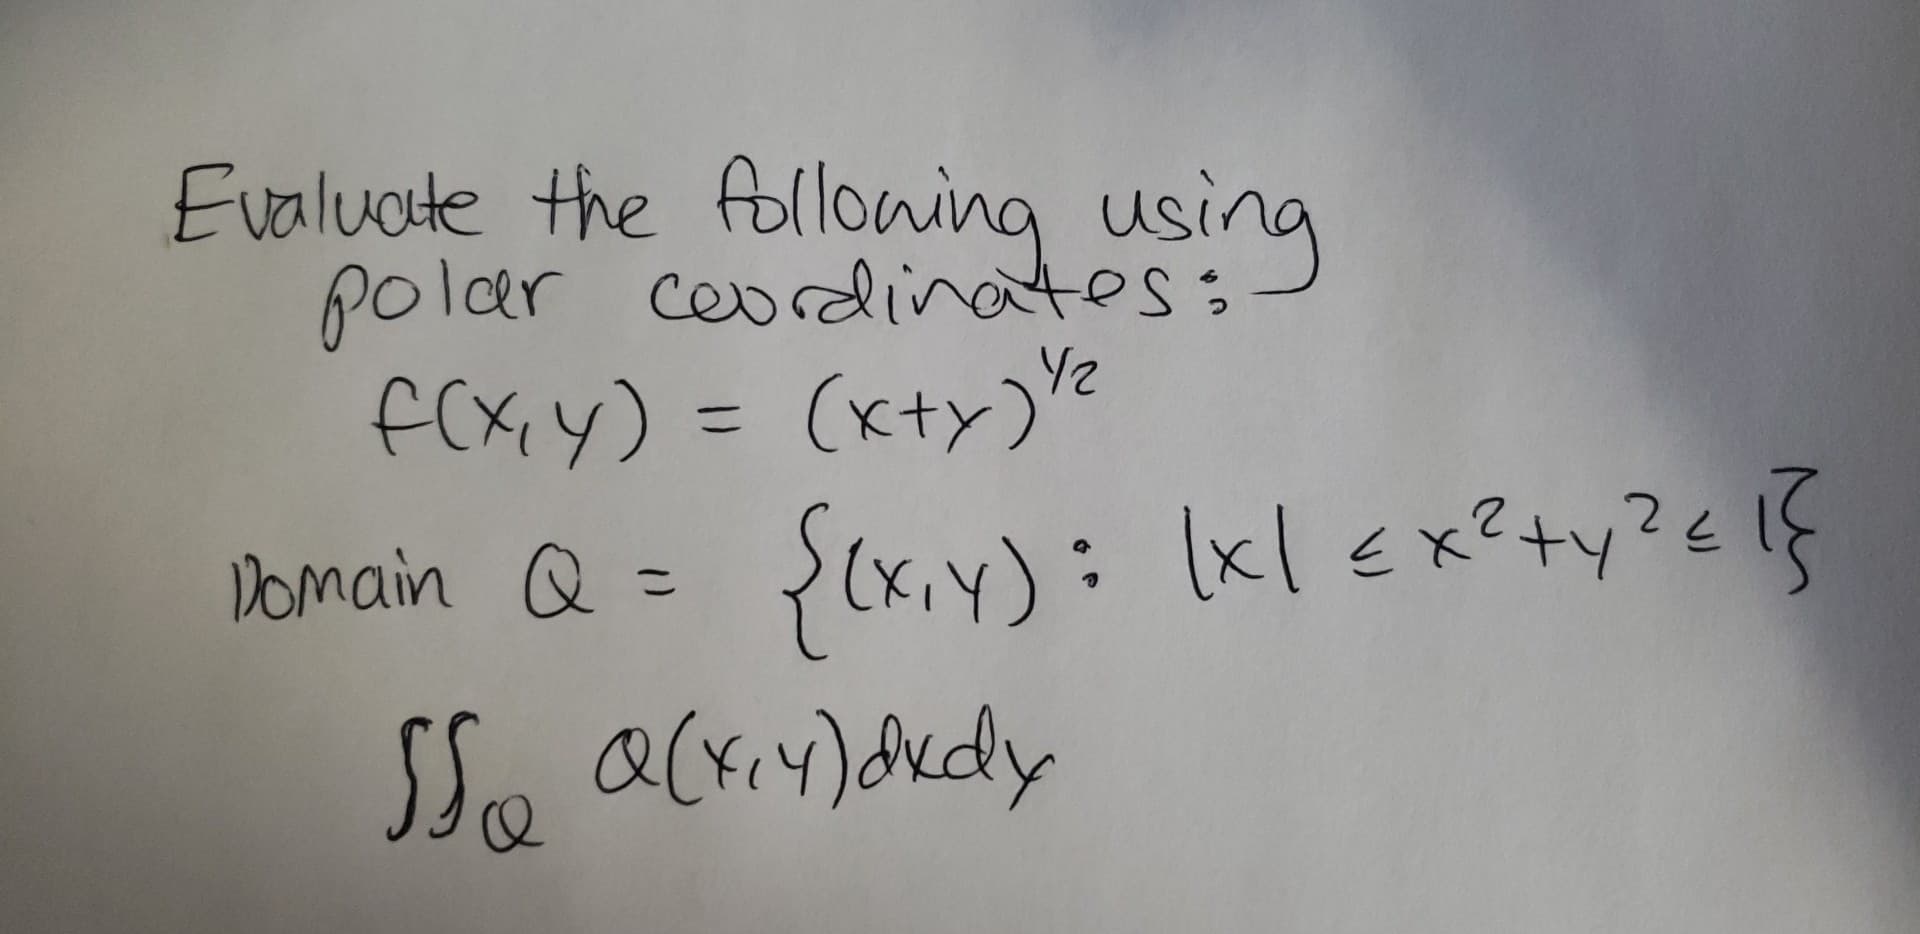 Evaluate the following using
polar coordinates:
f(x,y) = (x+y)^1/2
Domain Q = {(x,y): |x| ≤ x²+y² ≤ 1}
∫∫_Q Q(x,y)dxdy